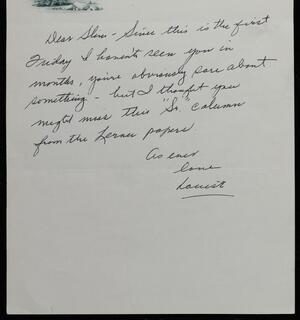 Dear Slim - Since this is the first
Friday I haven't seen you in
months, you're obviously sore about
something - but I thought you
might miss this "Sr." column
from the Lerner papers
As ever
Love